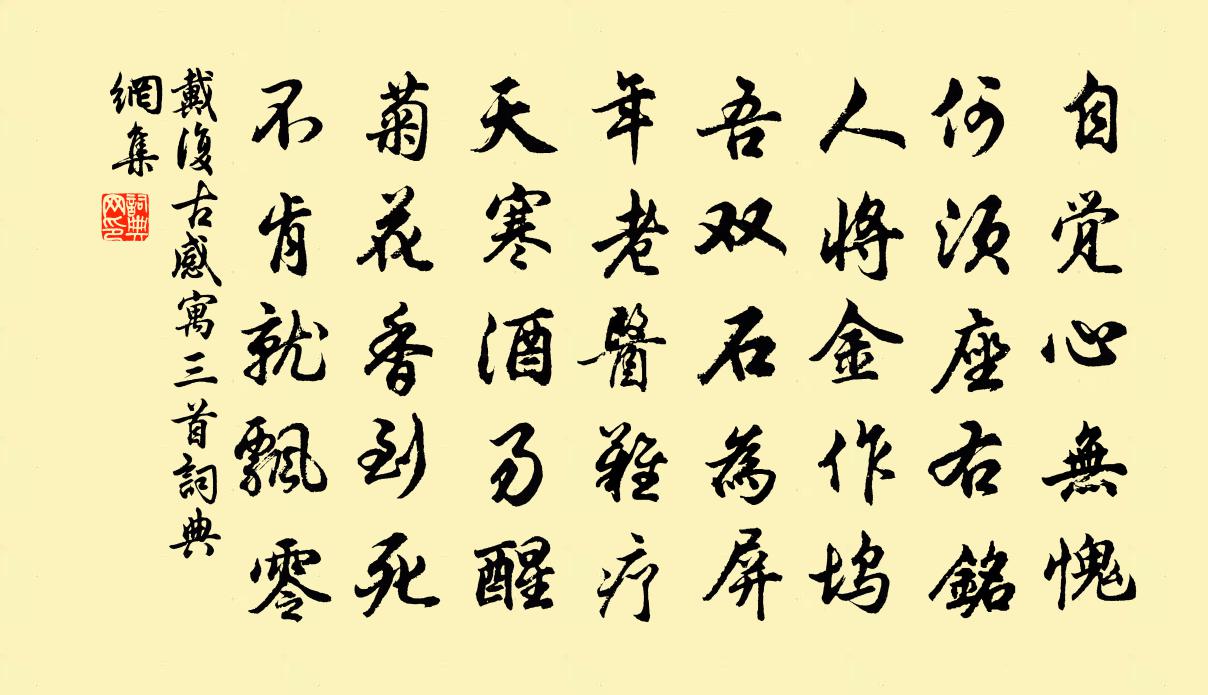 自觉心無愧
何須座右銘
人將金作塢
吾双石為屏
年老醫難疗
天寒酒易醒
菊花香到死
不肯就飄零
戴復古感寓三首詞典
網集
詞典
网印